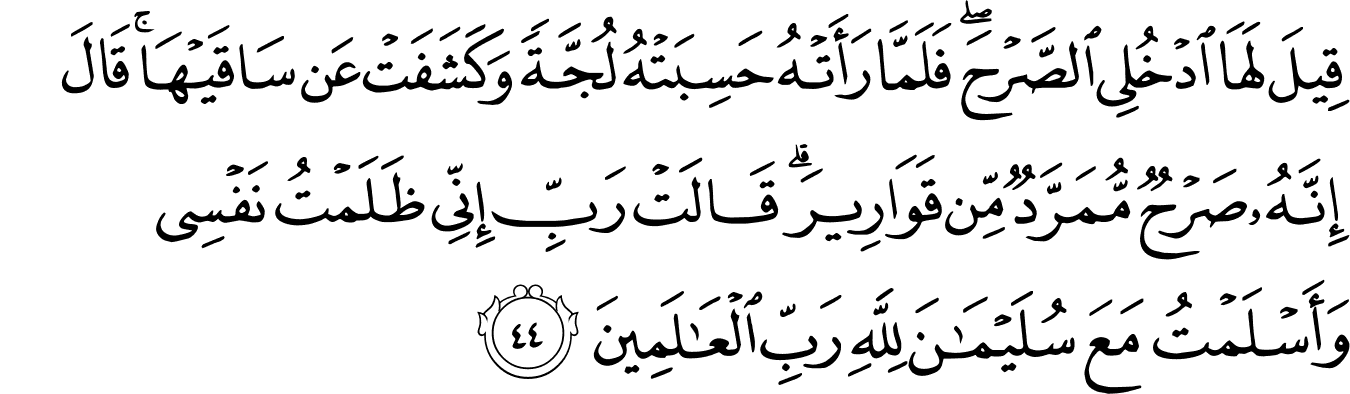 قِيلَ لَهَا ٱدۡخُلِى ٱلصَّرۡحَۖ فَلَمَّا رَأَتۡهُ حَسِبَتۡهُ لُجَّةً وَكَشَفَتۡ عَن سَاقَيۡهَاۚ قَالَ
إِنَّهُۥ صَرۡحٌ مُّمَرَّدٌ مِّن قَوَارِيرَۗ قَالَتۡ رَبِّ إِنِّى ظَلَمۡتُ نَفۡسِى
وَأَسۡلَمۡتُ مَعَ سُلَيۡمَـٰنَ لِلَّهِ رَبِّ ٱلۡعَـٰلَمِينَ ٤٤